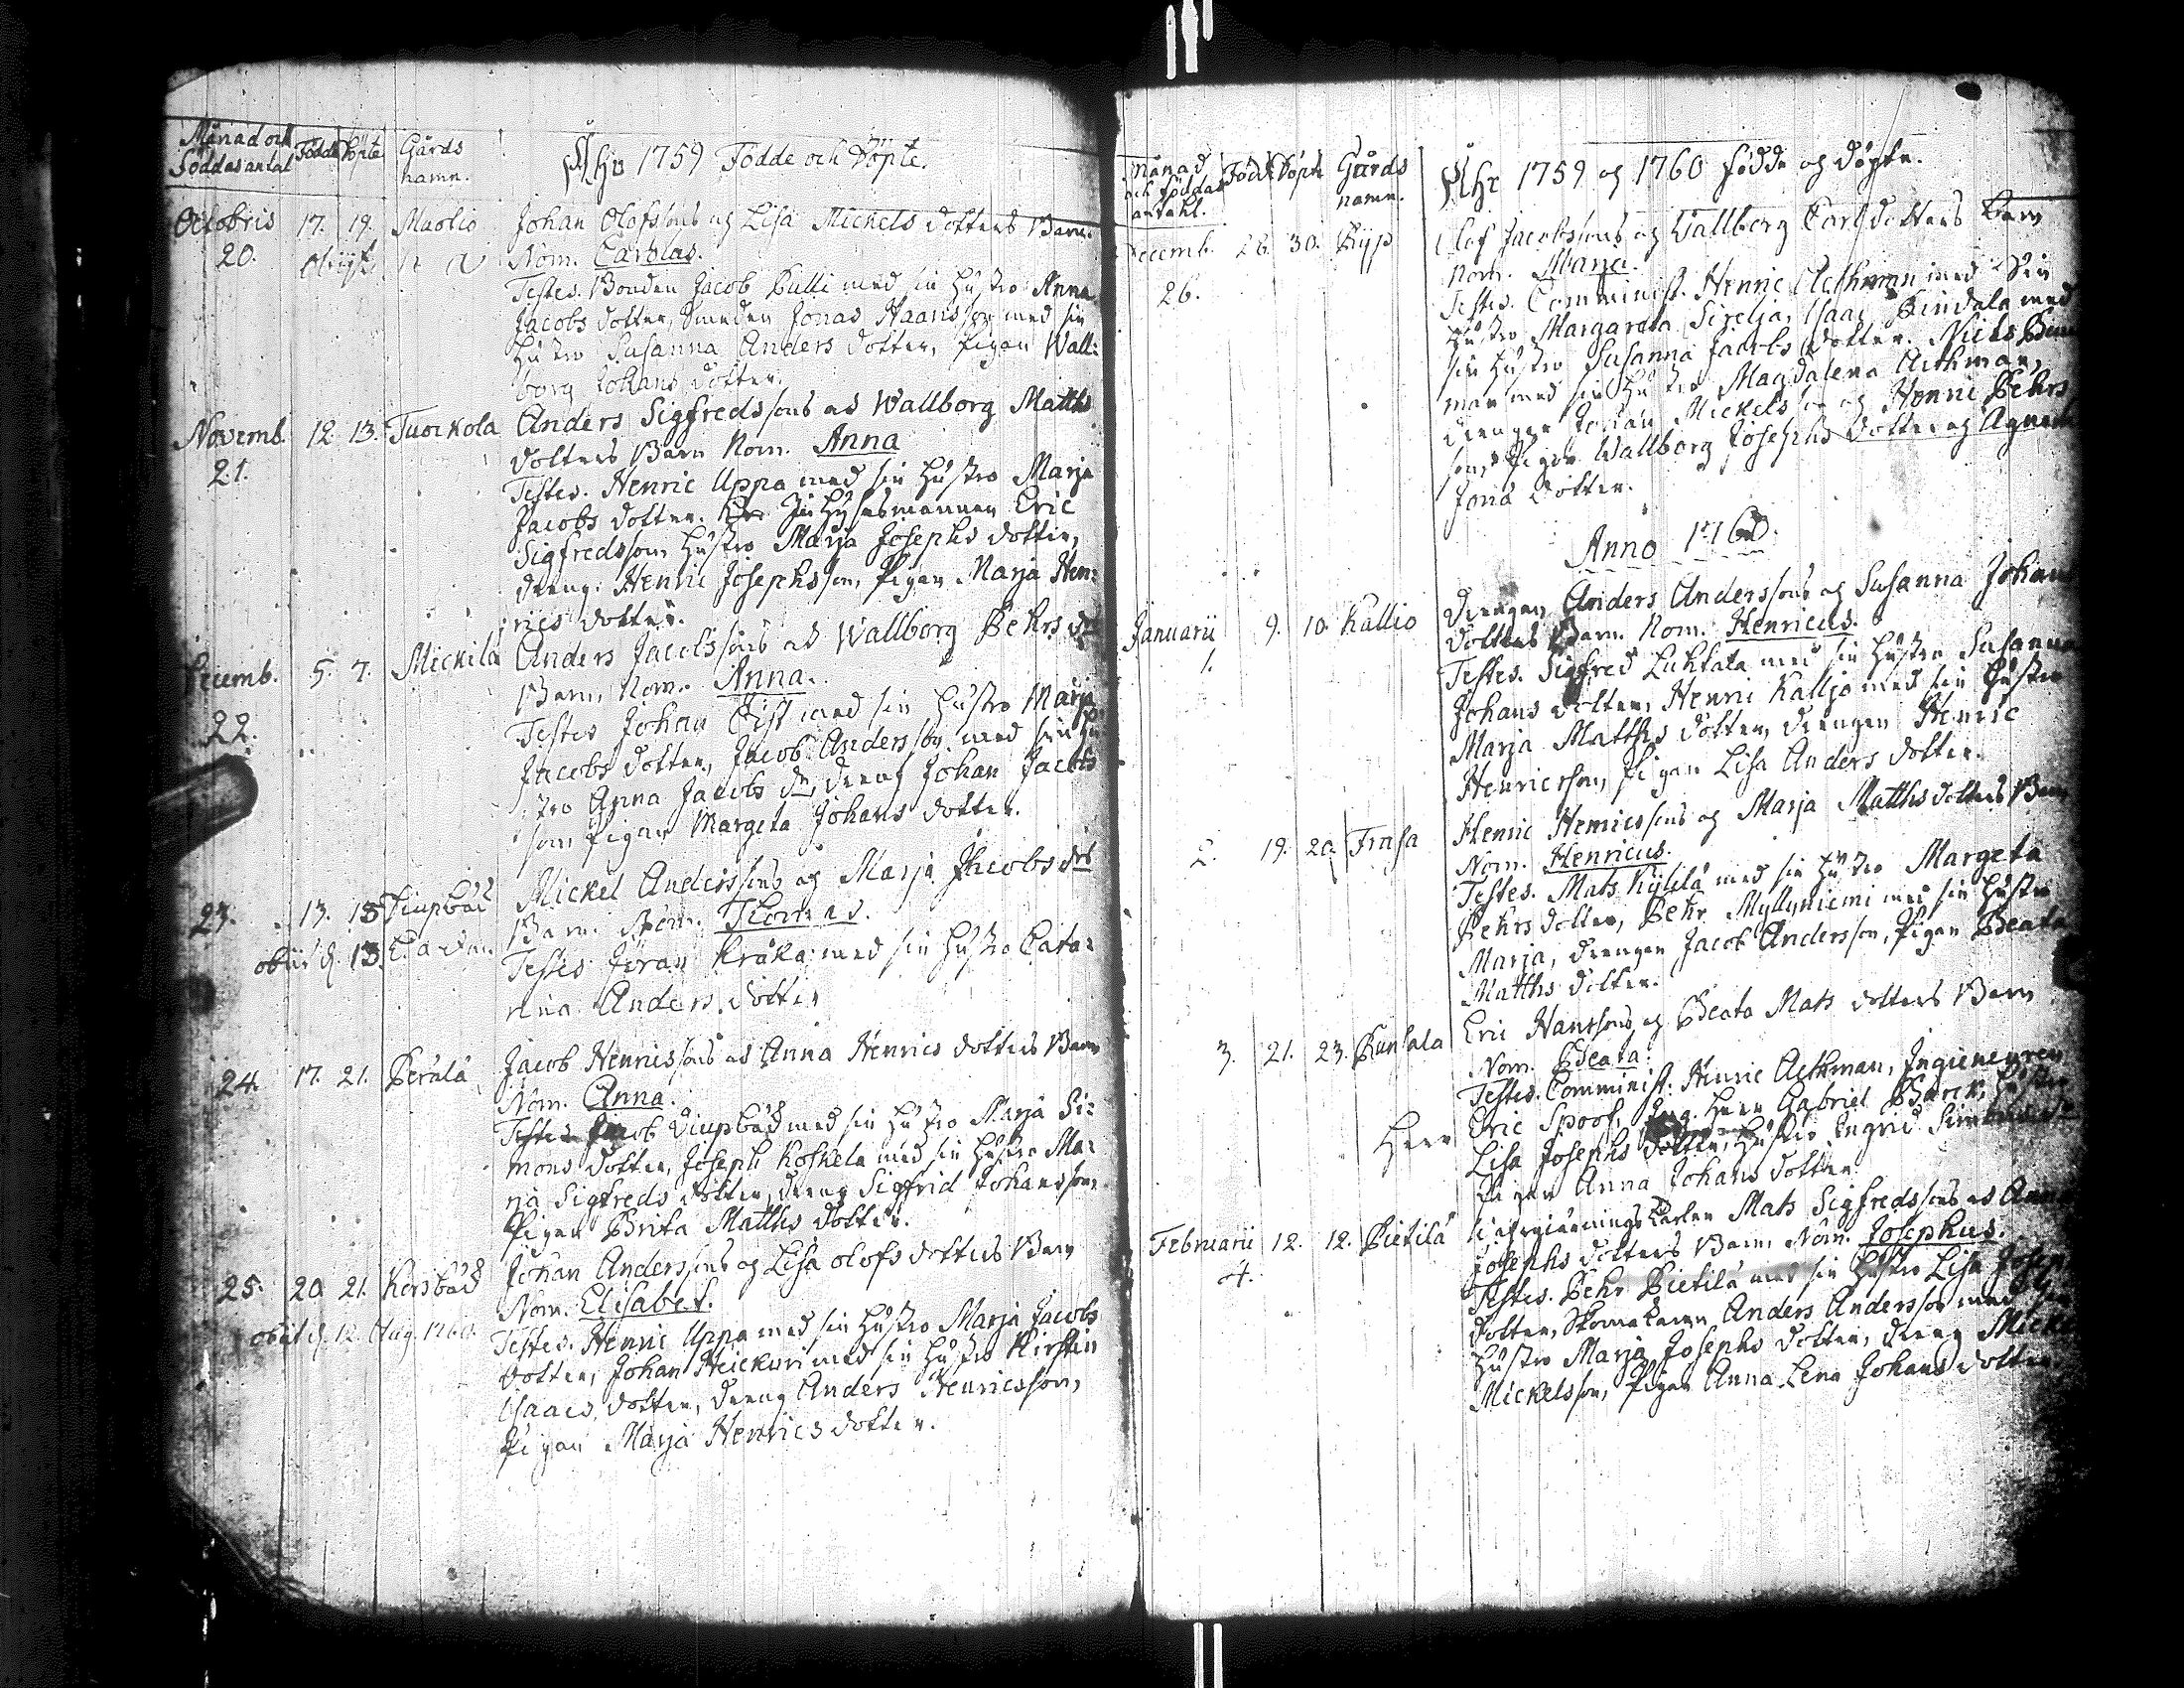 Månad och Födde Döpte Gårds
Föddas antal namn.
Åhr 1759 Födde och Döpte.
Octobris 17. 19. Maolio Johan Olofssons og Lisa Mickels dotters Barn.
20. Nom. Carolas.
Testes. Bonden Jacob Pulli med sin Hustro Anna
Jacobs dotter, Smeden Jonas Haansson med sin
Hustro Susanna Anders dotter, Pigan Wall:
borg Johans dotter.
Novemb. 12 13. Tuorkola Anders Sigfredssons as Wallborg Matths
21. dotters Barn Nom. Anna
Testes. Henric Uppa med sin Hustro Marja
Jacobs dotter. Inhysesmannen Eric
Sigfredsson Hustro Marja Josephs dotter,
dreng. Henric Josephsson, Pigan Marja Hen:
rics dotter.
Decemb. 5. 7. Mickila Anders Jacobssons as Wallborg Pehrs dr
22. Barn, Nom. Anna.
Testes Johan Qist med sin Hustro Marja
Jacobs dotter, Jacob Andersson med sin Hu
stro Anna Jacobs dr, dreng Johan Jacobs
son Pigan Margeta Johans dotter.
23. 13. 15 Diupbäd Mickel Anderssons og Marja Jacobs drs
Barn. Nom. Thomas.
obiit d. 13. Testes Jöran Kråka med sin Hustro Cata:
rina Anders dotter
24. 17. 21. Perälä Jacob Henricssons as Anna Henrics dotters Barn
Nom. Anna.
Testes Jacob Diupbäd med sin Hustro Marja Si:
mons dotter, Joseph Koskela med sin Hustro Ma:
ria Sigfreds dotter, dreng Sigfrid Johansson
Pigan Brita Matths dotter.
25. 20. 21. Korsbäd Johan Anderssons og Lisa Olofs dotters Barn
Nom. Elisabet.
obiit d. 12. Aug. 1760. Testes. Henric Uppa med sin Hustro Marja Jacobs
dotter, Johan Heickuri med sin Hustro Kirstin
Isaacs dotter, dreng Anders Henricsson,
Pigan Marja Henrics dotter.
Månad Född Döpte Gårds
och Föddas namn.
antahl.
Åhr 1759 og 1760 födde og döpte.
Decemb. 28. 30. Ryp Olof Jacobssons og Wallborg Carls dotters Barn
26. Nom. Maria.
Testes. Comminist. Henric Aethman med Sin
Hustro Margareta Sirelia, Isaac Pindala med
sin Hustro Susanna Jacobs dotter. Niels
man med sin Hustro Magdalena Aethman,
drengar Johan Mickelsson og Henric Pehrs
son, Pigor Wallborg Josephs dotter og Agneta
Jona dotter.
Anno 1760.
Januarii 9. 10. Kallio drengen Anders Anderssons og Susanna Johans
1. dotters Barn. Nom. Henricus.
Testes. Sigfred Luhtala med sin Hustro Susanna
Johans dotter, Henric Kalljo med sin Hustro
Marja Matths dotter, drengen Henric
Henricsson, Pigan Lisa Anders dotter.
2. 19. 20. Frasa Henric Henricssons og Marja Matths dotters Barn
Nom. Henricus.
Testes. Mats Kylelä med sin Hustro Margeta
Pehrs dotter, Pehr Myllyniemi med sin Hustro
Marja, drengen Jacob Andersson, Pigan Beata
Matths dotter.
3. 21. 23. Puntala Eric Hanssons og Beata Mats dotters Barn
Nom. Beata.
Testes. Comminist. Henric Aethman, Ingieneuren
Herr Eric Spoof, Herr Gabriel Barck, Hustro
Lisa Josephs dotter, Hustro Ingrid
Pigan Anna Johans dotter.
Februarii 12. 12. Pietilä Mats Sigfredssons as Anna
4. Josephs dotters Barn Nom. Josephus.
Testes. Pehr Pietilä med sin Hustro Lisa Joseps
dotter, Skomakaren Anders Andersson med sin
Hustro Marja Josephs dotter, dreng Mickel
Mickelsson, Pigan Anna Lena Johans dotter